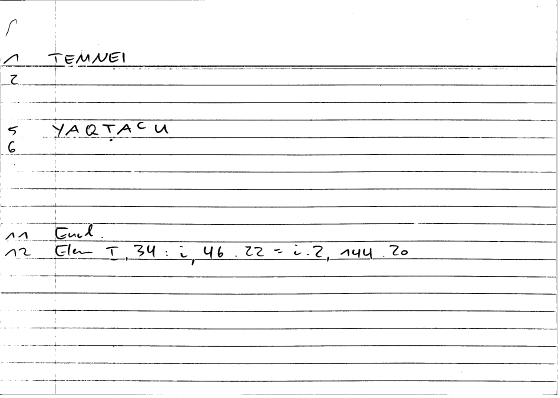 1 TEMNEI
2
5 YAQṬACU
6
11 Eucl.
12 Elem I, 34 : i, 46.22 = i.2, 144.20